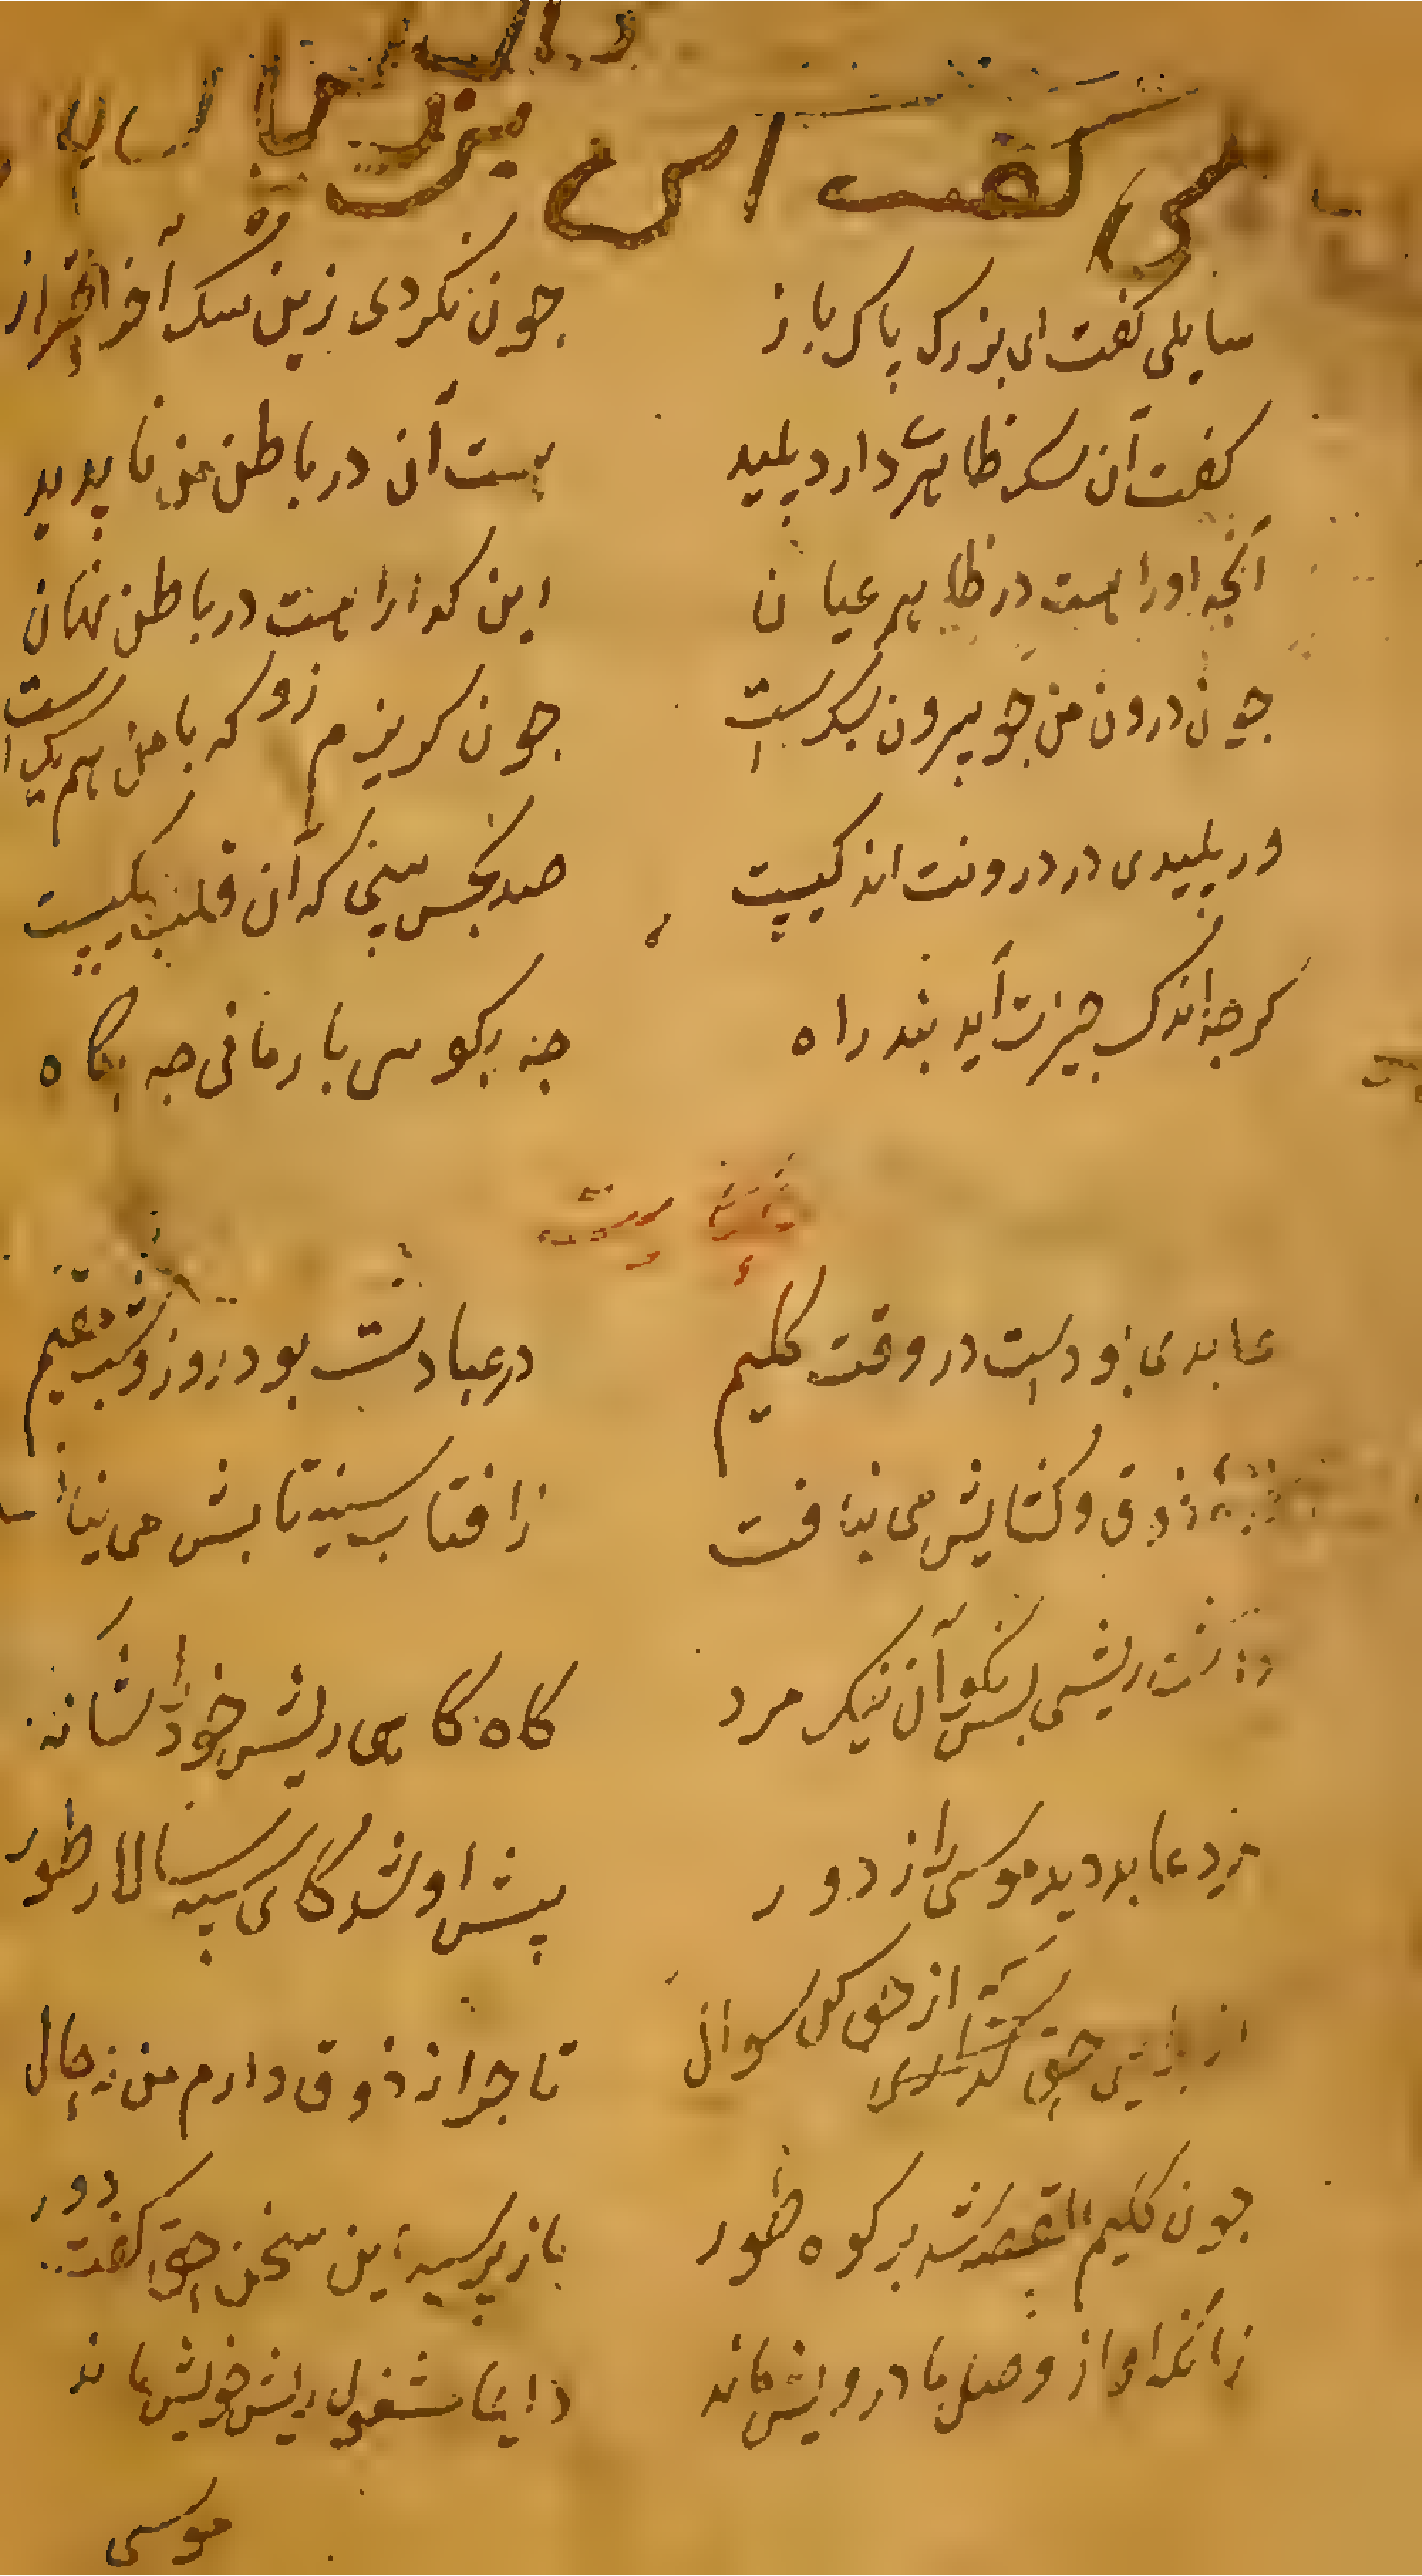 سایلی گفت ای بزرک پاک باز
جون نکردی زین سک آخر احتراز
کفت آن سک ظاهری دارد پلید
هست آن در باطن من ناپدید
آنجه او را هست در ظاهر عیان
این کدا را هست در باطن نهان
جون درون من جو بیرون سکست
جون کریزم زو که با من هم تکست
ور پلیدی در درونت اندکیست
صد نجس بینی که آن قلبت یکیست
کرجه اندک جیزت آید بند راه
جه بکوهی بازمانی جه بکاه
عابدی بودست در وقت کلیم
در عبادت بود روز و شب مقیم
ذوق و کشایش می نیافت
زافتاب سینه تابش می
داشت ریشی بس نکو آن نیک مرد
کاه کاهی ریش خود را شانه
مرد عابد دید موسی را ز دور
پیش او شد کای سپه سالار طور
از برای حق که از حق کن سوال
تا جرا نه ذوق دارم من نه حال
جون کلیم القصه شد بر کوه طور
باز پرسید این سخن حق کفت دور
زانک او از وصل ما درویش ماند
دایما مشغول ریش خویش ماند
موسی